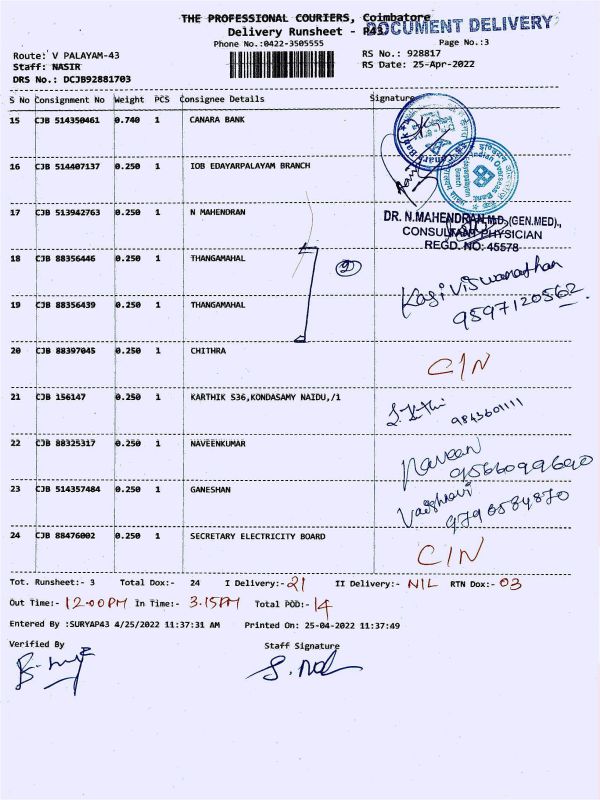 THE PROFESSIONAL COURIERS, Coimbatore
DOCUMENT DELIVERY
Delivery Runsheet - P43
Phone No.:0422-3505555
Page No.:3
Route: V PALAYAM-43
RS No.: 928817
Staff: NASIR
RS Date: 25-Apr-2022
DRS No.: DCJB92881703
S No Consignment No Weight PCS Consignee Details Signature
15 CJB 514350461 0.740 1 CANARA BANK
16 CJB 514407137 0.250 1 IOB EDAYARPALAYAM BRANCH
Indian Overseas Bank
17 CJB 513942763 0.250 1 N MAHENDRAN
DR. N.MAHENDRAN M.D.,(GEN.MED).,
CONSULTANT PHYSICIAN
REGD. NO: 45578
18 CJB 88356446 0.250 1 THANGAMAHAL
2
Kasi Viswanathan
19 CJB 88356439 0.250 1 THANGAMAHAL
9597120562
20 CJB 88397045 0.250 1 CHITHRA C/N
21 CJB 156147 0.250 1 KARTHIK 536,KONDASAMY NAIDU,/1
9843601111
22 CJB 88325317 0.250 1 NAVEENKUMAR Naveen
9566099690
23 CJB 514357484 0.250 1 GANESHAN Vaishnavi
24 CJB 88476002 0.250 1 SECRETARY ELECTRICITY BOARD C/N
Tot. Runsheet:- 3 Total Dox:- 24 I Delivery:- 21 II Delivery:- NIL RTN Dox:- 03
Out Time:- 12.00PM In Time:- 3.15PM Total POD:- 14
Entered By :SURYAP43 4/25/2022 11:37:31 AM Printed On: 25-04-2022 11:37:49
Verified By Staff Signature